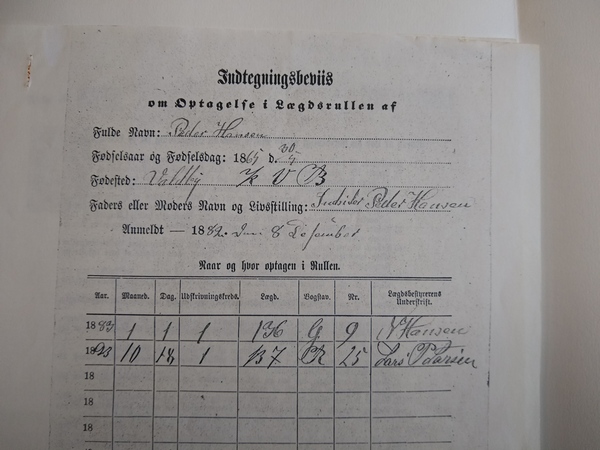 Indtegningsbeviis
om Optagelse i Lægdsrullen af
Fulde Navn: Peder Hansen
Fødselsaar og Fødselsdag: 1865 d. 30/5
Fødested: Valdby K V B
Faders eller Moders Navn og Livsstilling: Indsider Peder Hansen
Anmeldt — 1882 den 8 Desember
Naar og hvor optagen i Rullen.
Aar. Maaned. Dag. Udskrivningskreds. Lægd. Bogstav. Nr. Lægdsbestyrerens Underskrift.
1883 1 1 1 136 G 9 N Hansen
1883 10 18 1 137 R 25 Lars
18
18
18